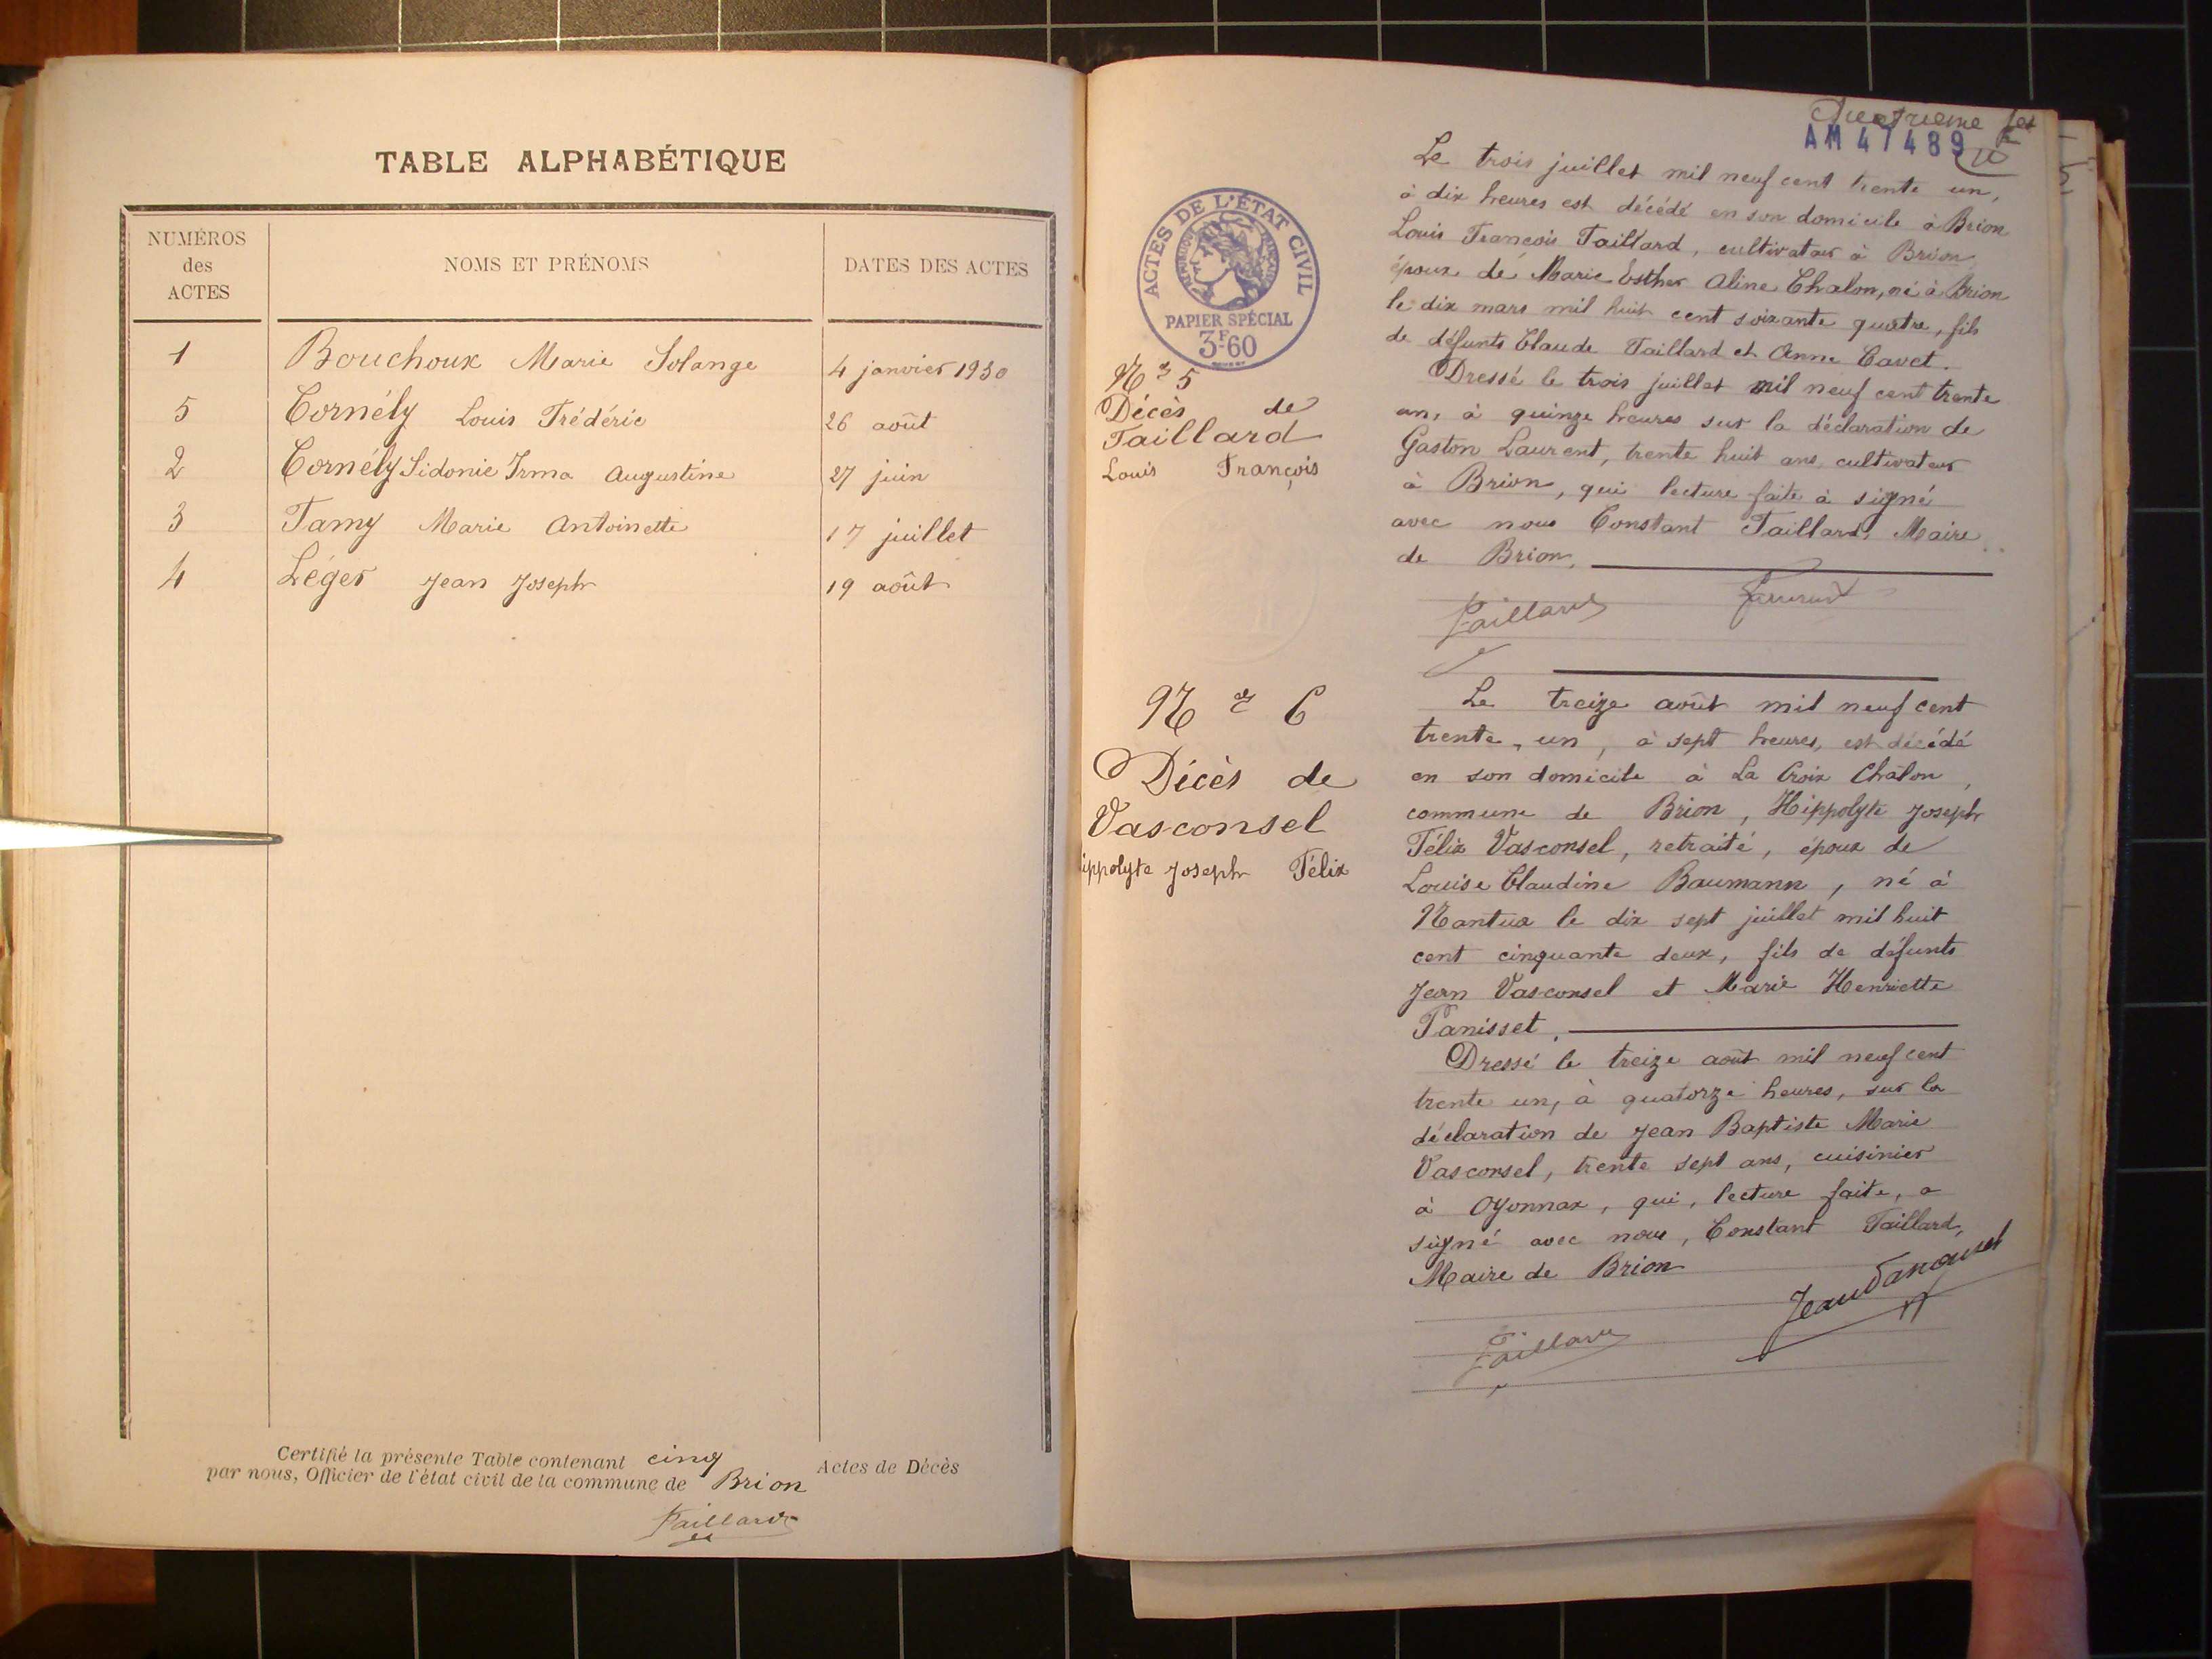 TABLE ALPHABÉTIQUE
NUMÉROS
des
ACTES
NOMS ET PRÉNOMS
DATES DES ACTES
1 Bouchoux Marie Solange 4 janvier 1930
5 Cornély Louis Frédéric 26 août
2 Cornély Sidonie Irma Augustine 27 juin
3 Famy Marie Antoinette 17 juillet
4 Léger Jean Joseph 19 août
Certifié la présente Table contenant cinq Actes de Décès
par nous, Officier de l'état civil de la commune de Brion
Taillard
AM 47489
ACTES DE L'ÉTAT CIVIL
RÉPUBLIQUE FRANÇAISE
PAPIER SPÉCIAL
3F60
No 5
Décès de
Taillard
Louis François
Le trois juillet mil neuf cent trente un,
à dix heures est décédé en son domicile à Brion
Louis François Taillard, cultivateur à Brion
époux de Marie Esther Aline Chalon, né à Brion
le dix mars mil huit cent soixante quatre, fils
de défunts Claude Taillard et Anne Cavet.
Dressé le trois juillet mil neuf cent trente
un, à quinze heures sur la déclaration de
Gaston Laurent, trente huit ans, cultivateur
à Brion, qui lecture faite à signé
avec nous Constant Taillard, Maire
de Brion.
Taillard Laurent
No 6
Décès de
Vasconsel
ippolyte Joseph Félix
Le treize août mil neuf cent
trente-un, à sept heures, est décédé
en son domicile à La Croix Châlon,
commune de Brion, Hippolyte Joseph
Félix Vasconsel, retraité, époux de
Louise Claudine Baumann, né à
Nantua le dix sept juillet mil huit
cent cinquante deux, fils de défunts
Jean Vasconsel et Marie Henriette
Panisset.
Dressé le treize août mil neuf cent
trente un, à quatorze heures, sur la
déclaration de Jean Baptiste Marie
Vasconsel, trente sept ans, cuisinier
à Oyonnax, qui, lecture faite, a
signé avec nous, Constant Taillard,
Maire de Brion
Taillard